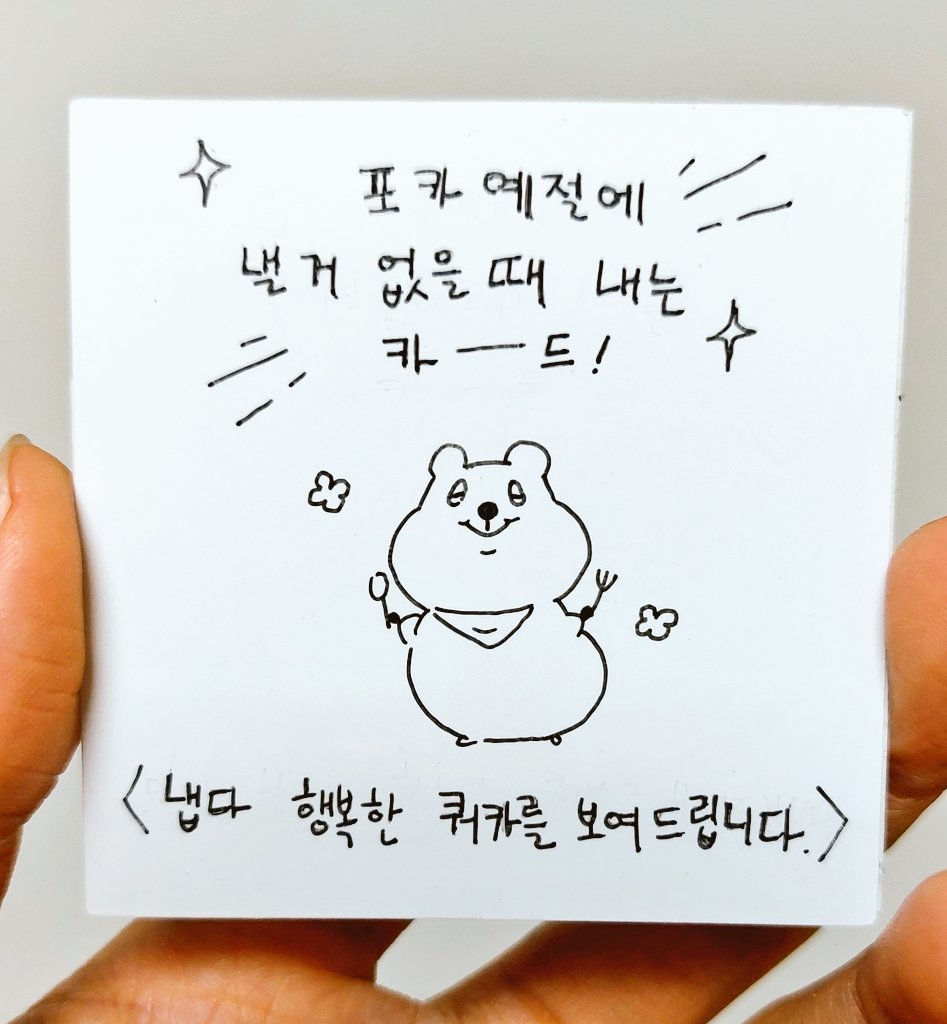 포카 예절에
낼거 없을때 내는
카 — 드!
<냅다 행복한 쿼카를 보여드립니다.>